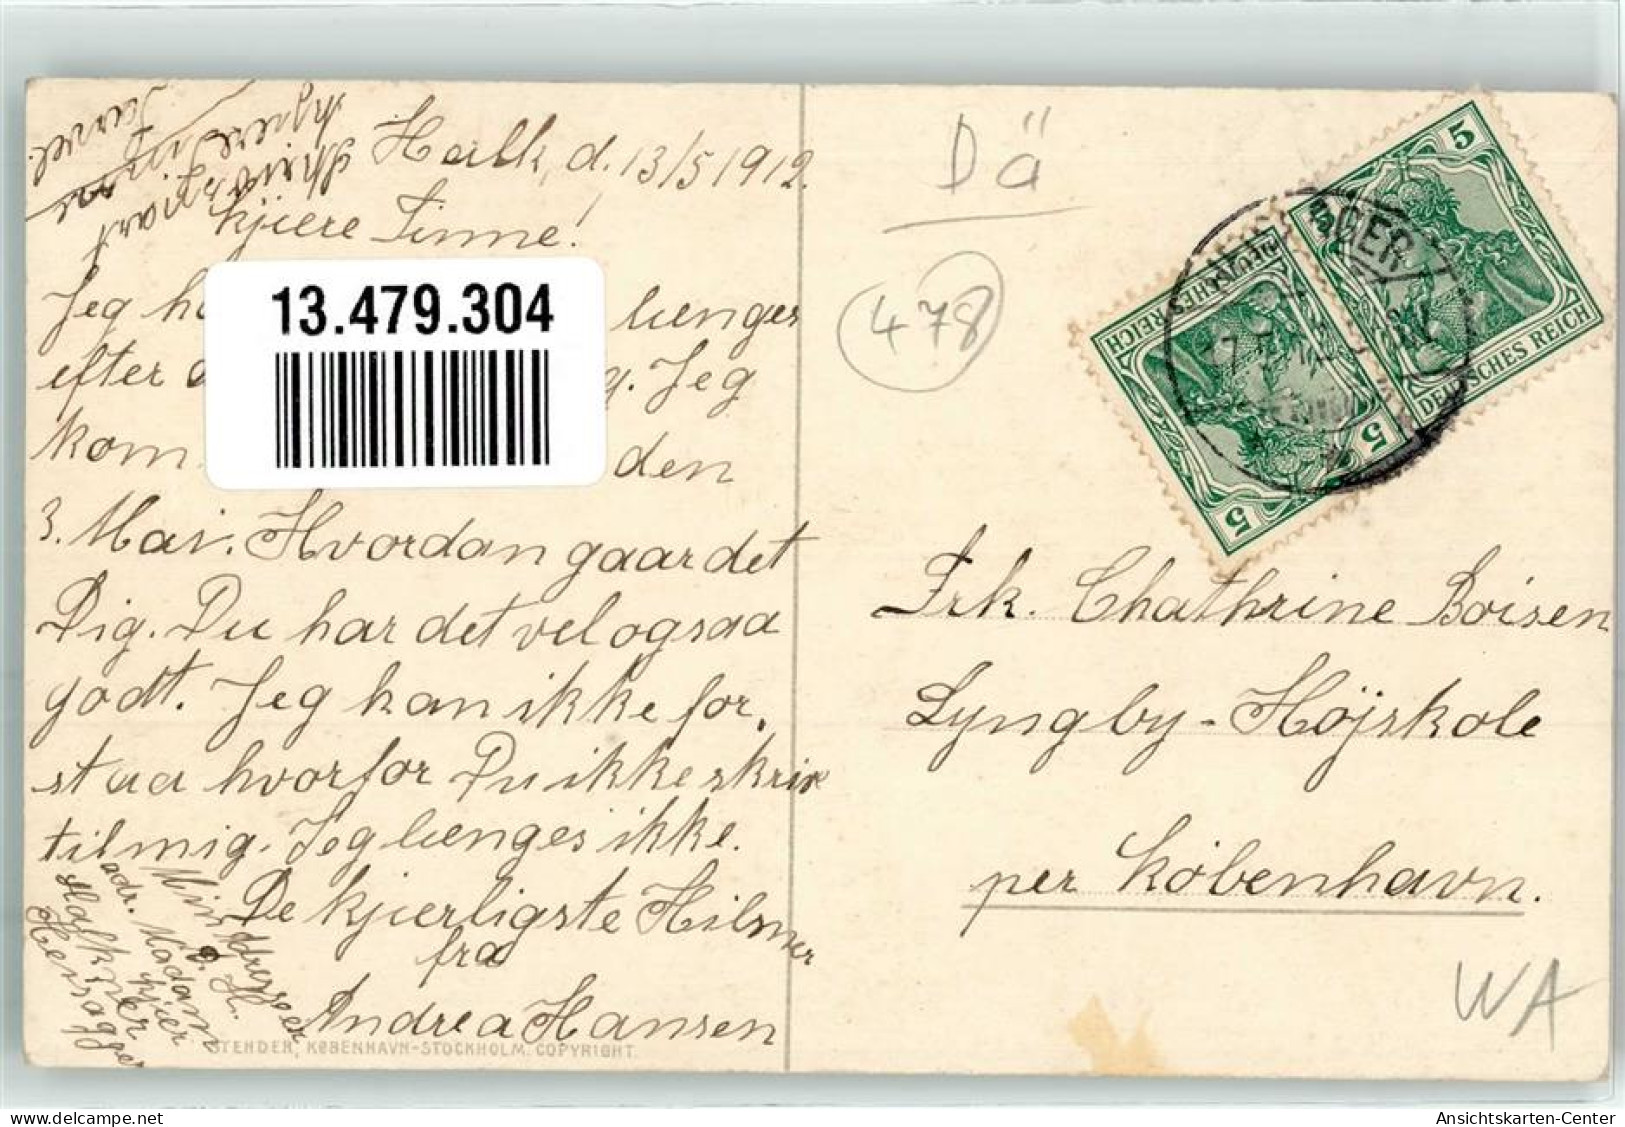 Halk, d. 13/5 1912.
kjære Tinne!
Jeg ha
længes
efter d
g. Jeg
kom
den
3. Mai. Hvordan gaar det
Dig. Du har det vel ogsaa
godt. Jeg kan ikke for,
staa hvorfor Du ikke skriv
til mig. Jeg længes ikke.
De kjærligste Hilsner
fra
Andrea Hansen
Min Adresse er
adr. Madam
Halk per
Hersagger
STENDER, KØBENHAVN-STOCKHOLM. COPYRIGHT.
13.479.304
Dä
478
5
DEUTSCHES REICH
5 5
DEUTSCHES REICH
Frk. Chathrine Boisen
Lyngby-Højskole
per København.
WA
https://www.delcampe.net
Ansichtskarten-Center